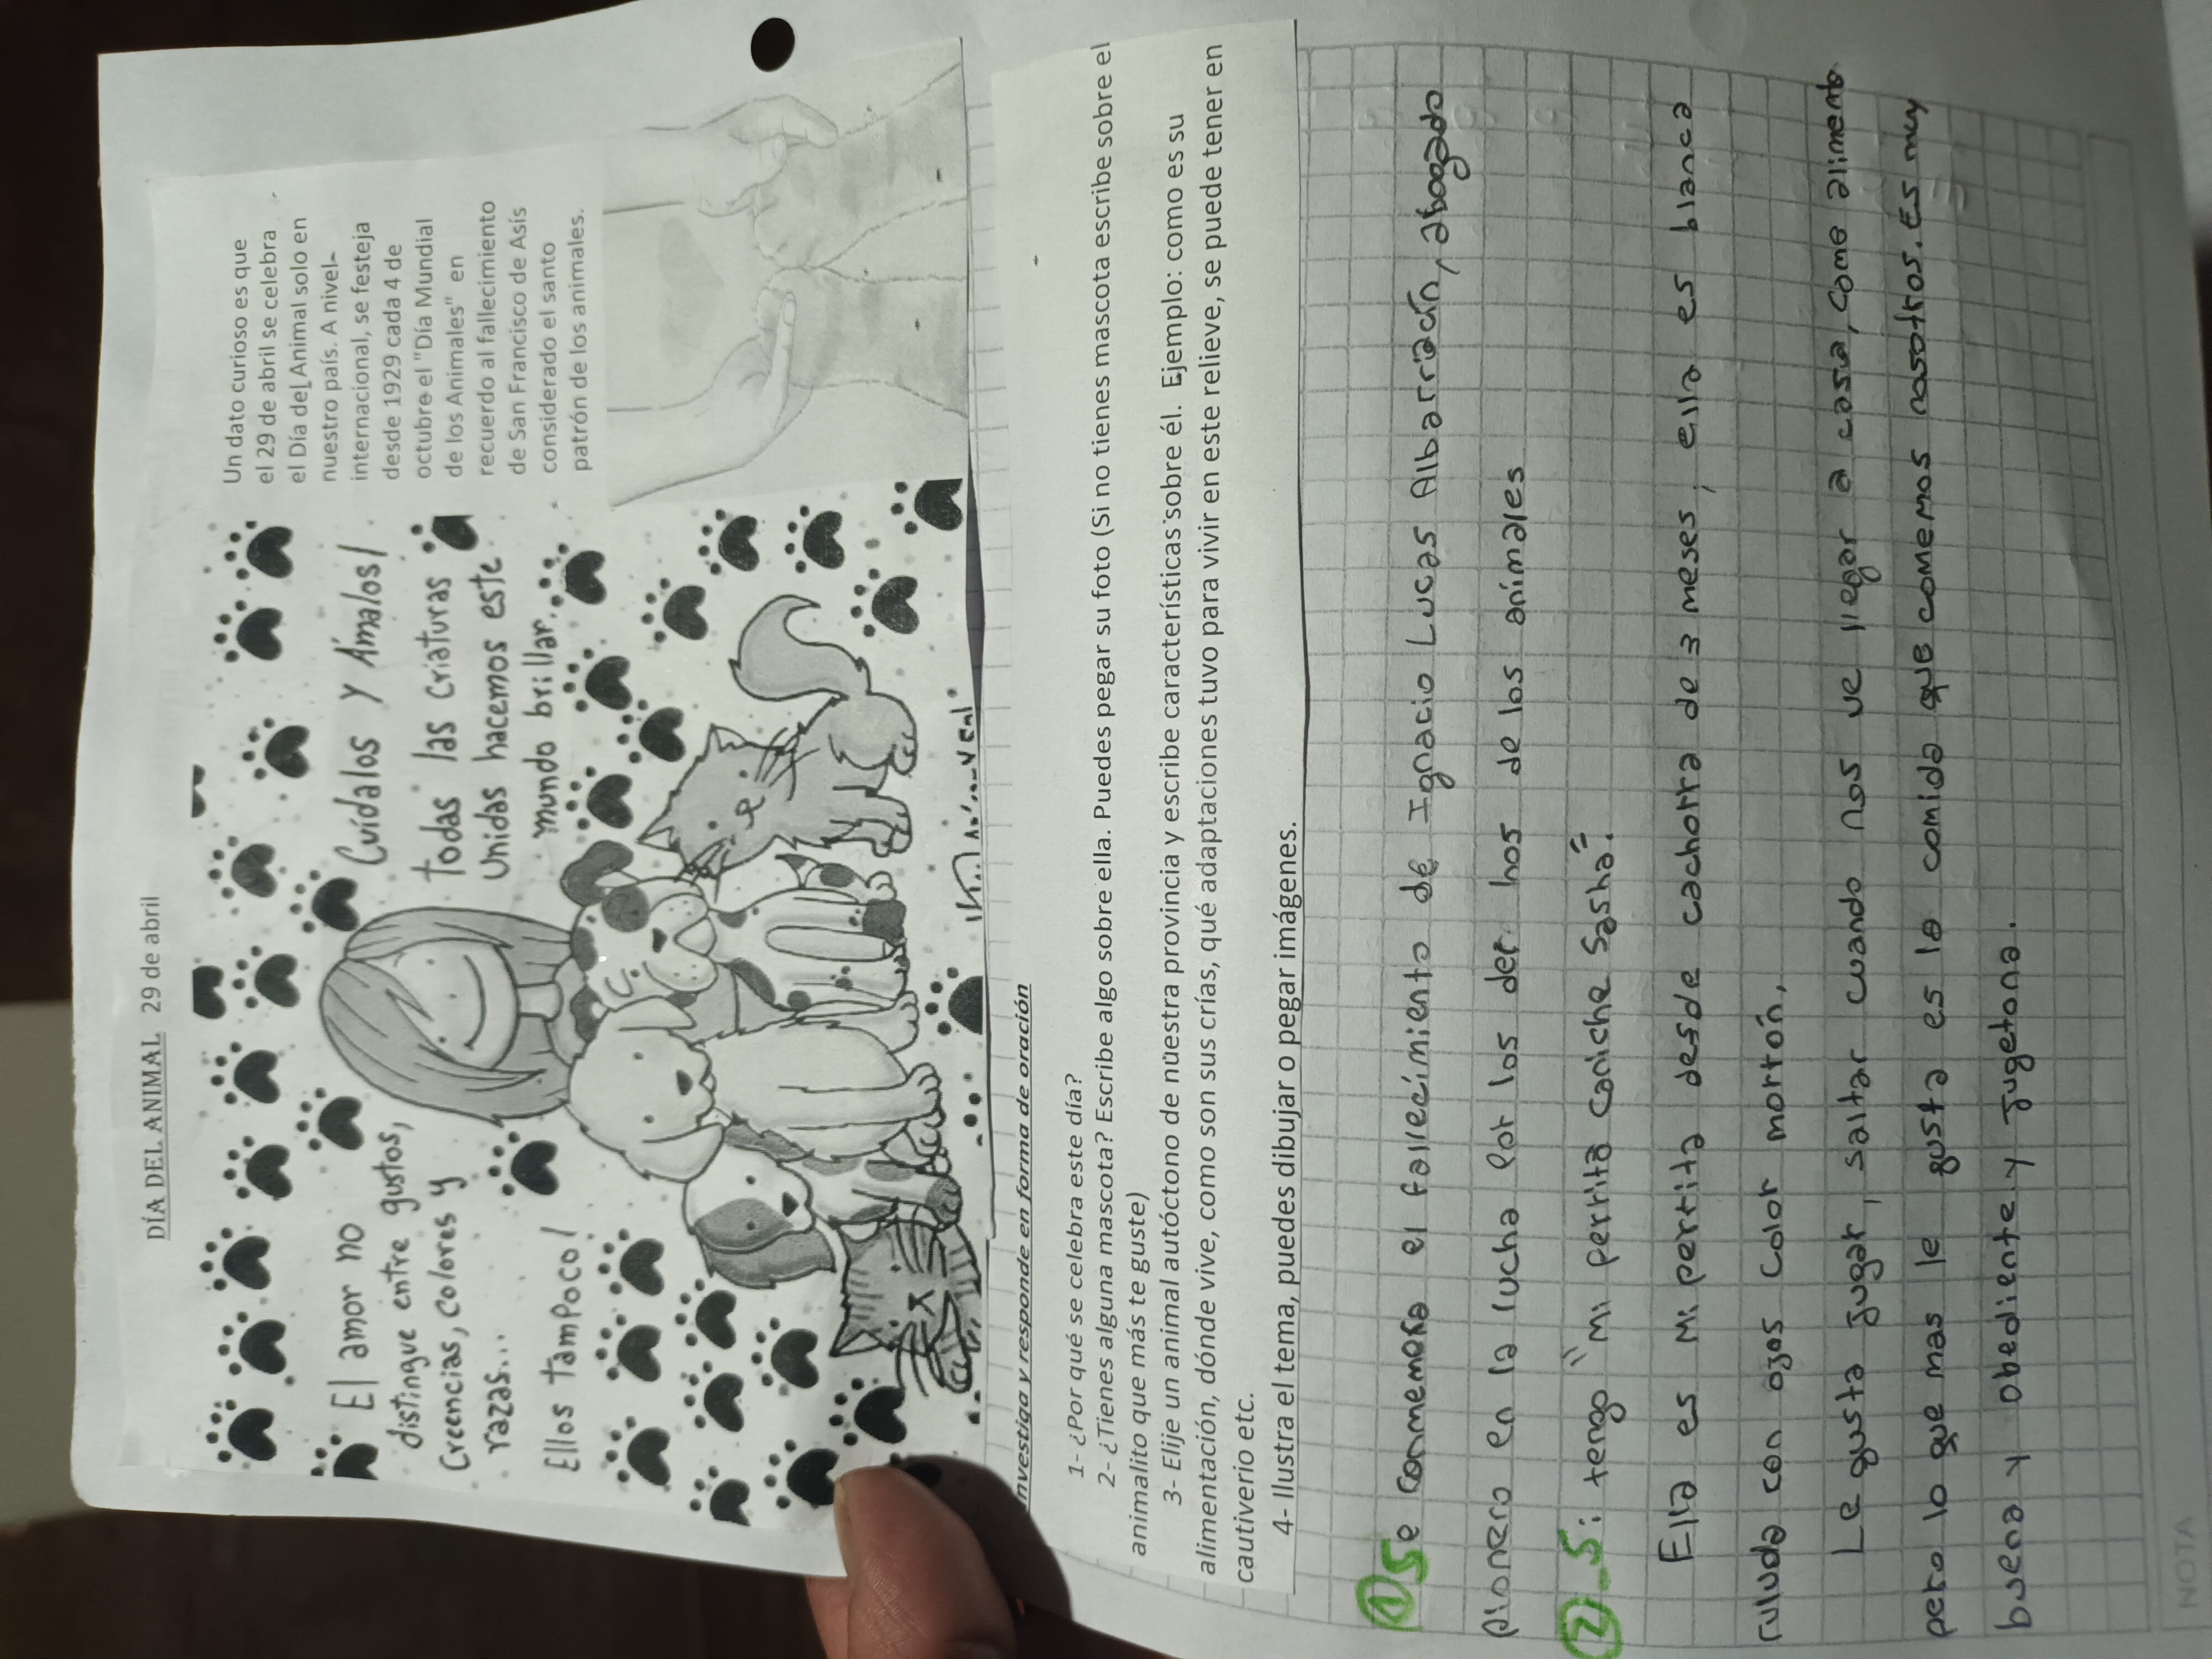 DÍA DEL ANIMAL 29 de abril
El amor no
distingue entre gustos,
Creencias, colores y
razas...
Ellos tampoco!
Cuídalos y Ámalos!
todas las criaturas
unidas hacemos este
mundo brillar.
Un dato curioso es que
el 29 de abril se celebra
el Día del Animal solo en
nuestro país. A nivel
internacional, se festeja
desde 1929 cada 4 de
octubre el "Día Mundial
de los Animales" en
recuerdo al fallecimiento
de San Francisco de Asís
considerado el santo
patrón de los animales.
nvestiga y responde en forma de oración
1- ¿Por qué se celebra este día?
2- ¿Tienes alguna mascota? Escribe algo sobre ella. Puedes pegar su foto (Si no tienes mascota escribe sobre el
animalito que más te guste)
3- Elije un animal autóctono de nuestra provincia y escribe características sobre él. Ejemplo: como es su
alimentación, dónde vive, como son sus crías, qué adaptaciones tuvo para vivir en este relieve, se puede tener en
cautiverio etc.
4- Ilustra el tema, puedes dibujar o pegar imágenes.
1 Se conmemora el fallecimiento de Ignacio Lucas Albarrración, abogado
pionero en la lucha por los der. hos de los animales
2 -S: tengo "mi perrita caniche Sasha".
Ella es mi perrita desde cachorra de 3 meses, ella es blanca
ruluda con ojos color morrón,
Le gusta jugar, saltar cuando nos ve llegar a casa, come alimento
pero lo que mas le gusta es la comida que comemos nosotros. Es muy
buena y obediente y jugetona.
NOTA